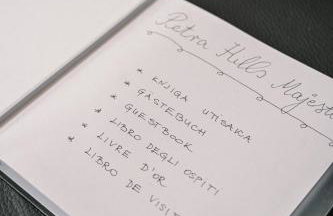 Retra Hills Majest
* KNJIGA UTISAKA
* GASTEBUCH
* GUESTBOOK
* LIBRO DEGLI OSPITI
* LIVRE D'OR
* LIBRO DE VISIT